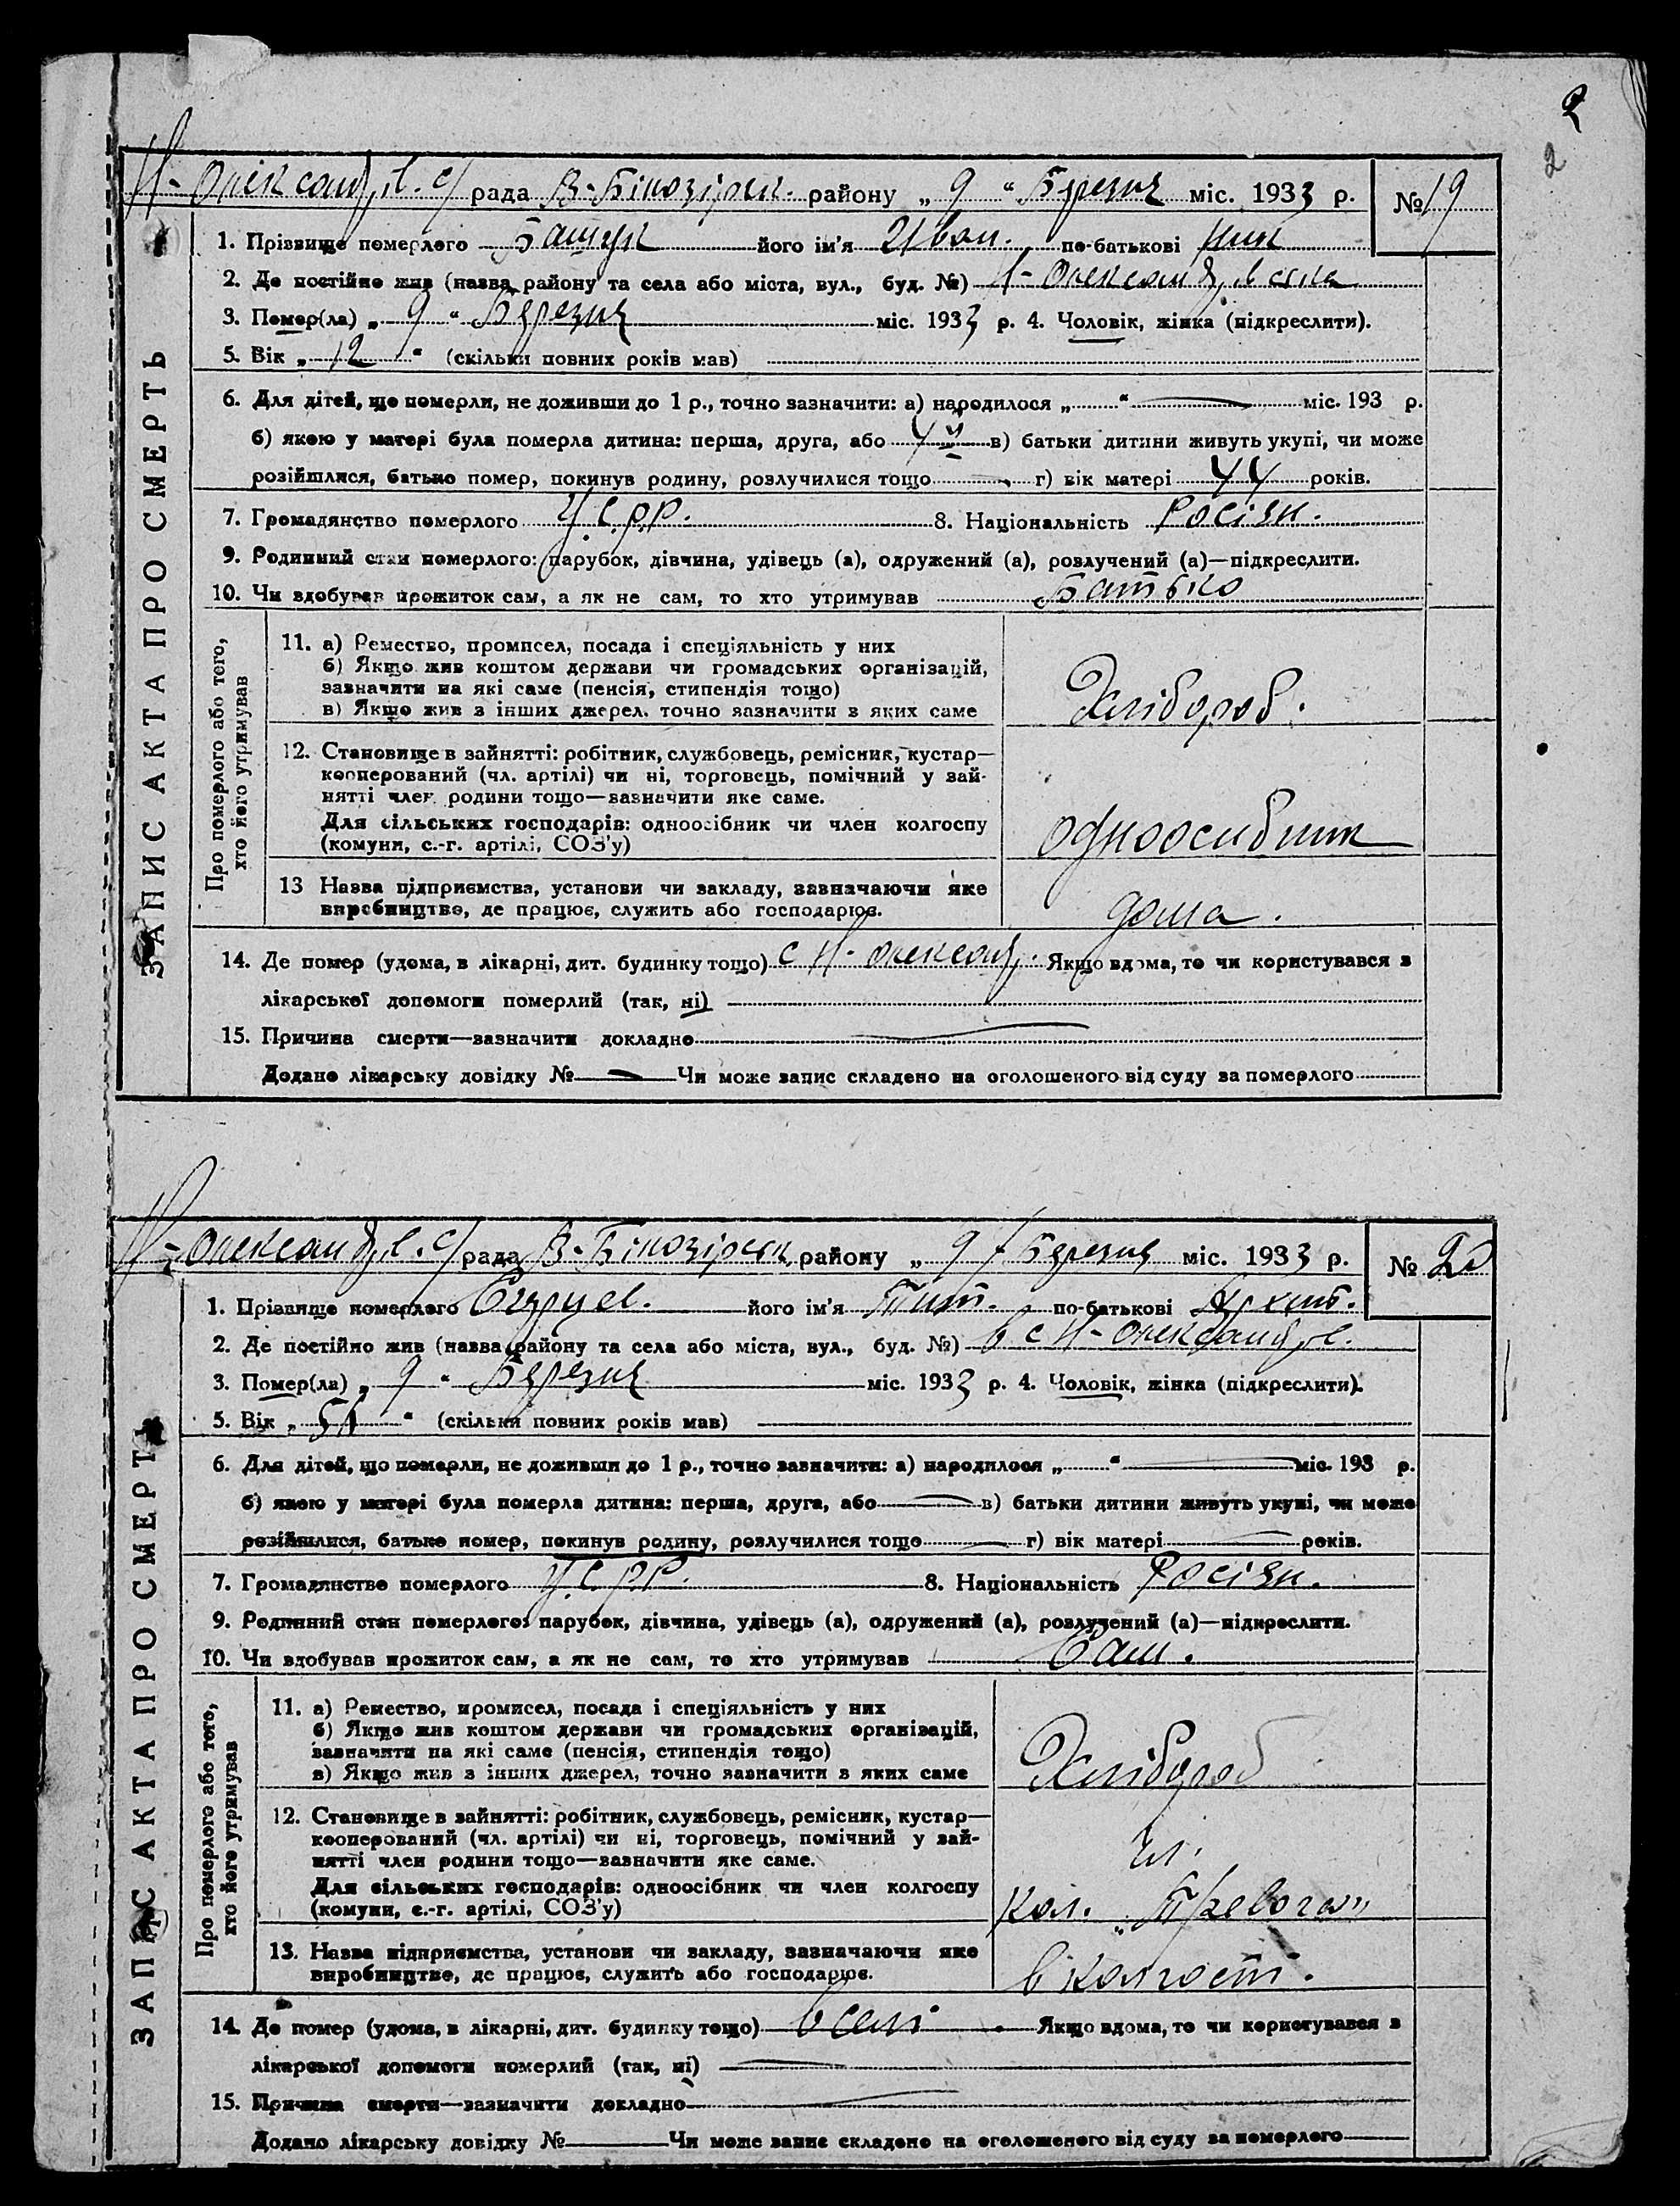 2
2
Н-Олександрів. с/рада В-Білозірськ. району „ 9 “ Березня міс. 1933 р. № 19
1. Прізвище померлого його ім'я Іван. по-батькові
2. Де постійно жив (назва району та села або міста, вул., буд. №) Н-Олександрівська
3. Помер(ла) „ 9 “ Березня міс. 1933 р. 4. Чоловік, жінка (підкреслити).
5. Вік „ 12 “ (скільки повних років мав)
6. Для дітей, що померли, не доживши до 1 р., точно зазначити: а) народилося „ “ міс. 193 р.
б) якою у матері була померла дитина: перша, друга, або 4 в) батьки дитини живуть укупі, чи може
розійшлися, батько помер, покинув родину, розлучилися тощо г) вік матері 44 років.
7. Громадянство померлого У.С.Р.Р. 8. Національність Росіян.
9. Родинний стан померлого: парубок, дівчина, удівець (а), одружений (а), розлучений (а)—підкреслити.
10. Чи здобував прожиток сам, а як не сам, то хто утримував Батько
ЗАПИС АКТА ПРО СМЕРТЬ
Про померлого або того,
хто його утримував
11. а) Ремество, промисел, посада і спеціяльність у них
б) Якщо жив коштом держави чи громадських організацій,
зазначити на які саме (пенсія, стипендія тощо)
в) Якщо жив з інших джерел, точно зазначити з яких саме
Хлібороб.
12. Становище в зайнятті: робітник, службовець, ремісник, кустар—
кооперований (чл. артілі) чи ні, торговець, помічний у зай-
нятті член родини тощо—зазначити яке саме.
Для сільських господарів: одноосібник чи член колгоспу
(комуни, с.-г. артілі, СОЗ'у)
13 Назва підприємства, установи чи закладу, зазначаючи яке
виробництво, де працює, служить або господарює.
дома.
14. Де помер (удома, в лікарні, дит. будинку тощо) с Н-Олександр. Якщо вдома, то чи користувався з
лікарської допомоги померлий (так, ні)
15. Причина смерти—зазначити докладно
Додано лікарську довідку № Чи може запис складено на оголошеного від суду за померлого
Н-Олександрів. с/рада В-Білозірськ. району „ 9 “ Березня міс. 1933 р. № 20
1. Прізвище померлого його ім'я Тит. по-батькові
2. Де постійно жив (назва району та села або міста, вул., буд. №) в с Н-Олександрів.
3. Помер(ла) „ 9 “ Березня міс. 1933 р. 4. Чоловік, жінка (підкреслити).
5. Вік „ “ (скільки повних років мав)
6. Для дітей, що померли, не доживши до 1 р., точно зазначити: а) народилося „ “ міс. 193 р.
б) якою у матері була померла дитина: перша, друга, або в) батьки дитини живуть укупі, чи може
розійшлися, батько помер, покинув родину, розлучилися тощо г) вік матері років.
7. Громадянство померлого У.С.Р.Р. 8. Національність Росіян.
9. Родинний стан померлого: парубок, дівчина, удівець (а), одружений (а), розлучений (а)—підкреслити.
10. Чи здобував прожиток сам, а як не сам, то хто утримував Сам.
ЗАПИС АКТА ПРО СМЕРТЬ
Про померлого або того,
хто його утримував
11. а) Ремество, промисел, посада і спеціяльність у них
б) Якщо жив коштом держави чи громадських організацій,
зазначити на які саме (пенсія, стипендія тощо)
в) Якщо жив з інших джерел, точно зазначити з яких саме
Хлібороб
12. Становище в зайнятті: робітник, службовець, ремісник, кустар—
кооперований (чл. артілі) чи ні, торговець, помічний у зай-
нятті член родини тощо—зазначити яке саме.
Для сільських господарів: одноосібник чи член колгоспу
(комуни, с.-г. артілі, СОЗ'у)
чл.
кол.
13. Назва підприємства, установи чи закладу, зазначаючи яке
виробництво, де працює, служить або господарює.
в колгоспі.
14. Де помер (удома, в лікарні, дит. будинку тощо) в селі Якщо вдома, то чи користувався з
лікарської допомоги померлий (так, ні)
15. Причина смерти—зазначити докладно
Додано лікарську довідку № Чи може запис складено на оголошеного від суду за померлого